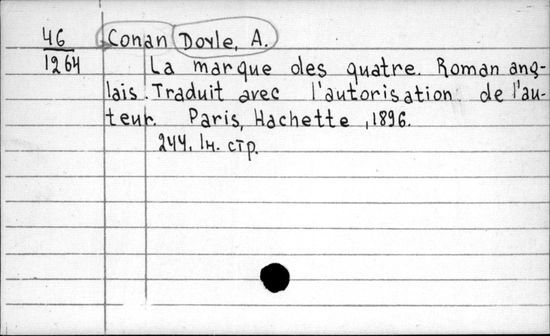 46
1264
Conan Doyle, A.
La marque des quatre. Roman ang-
lais. Traduit avec l'autorisation de l'au-
teur. Paris, Hachette, 1896.
244, 1н. стр.